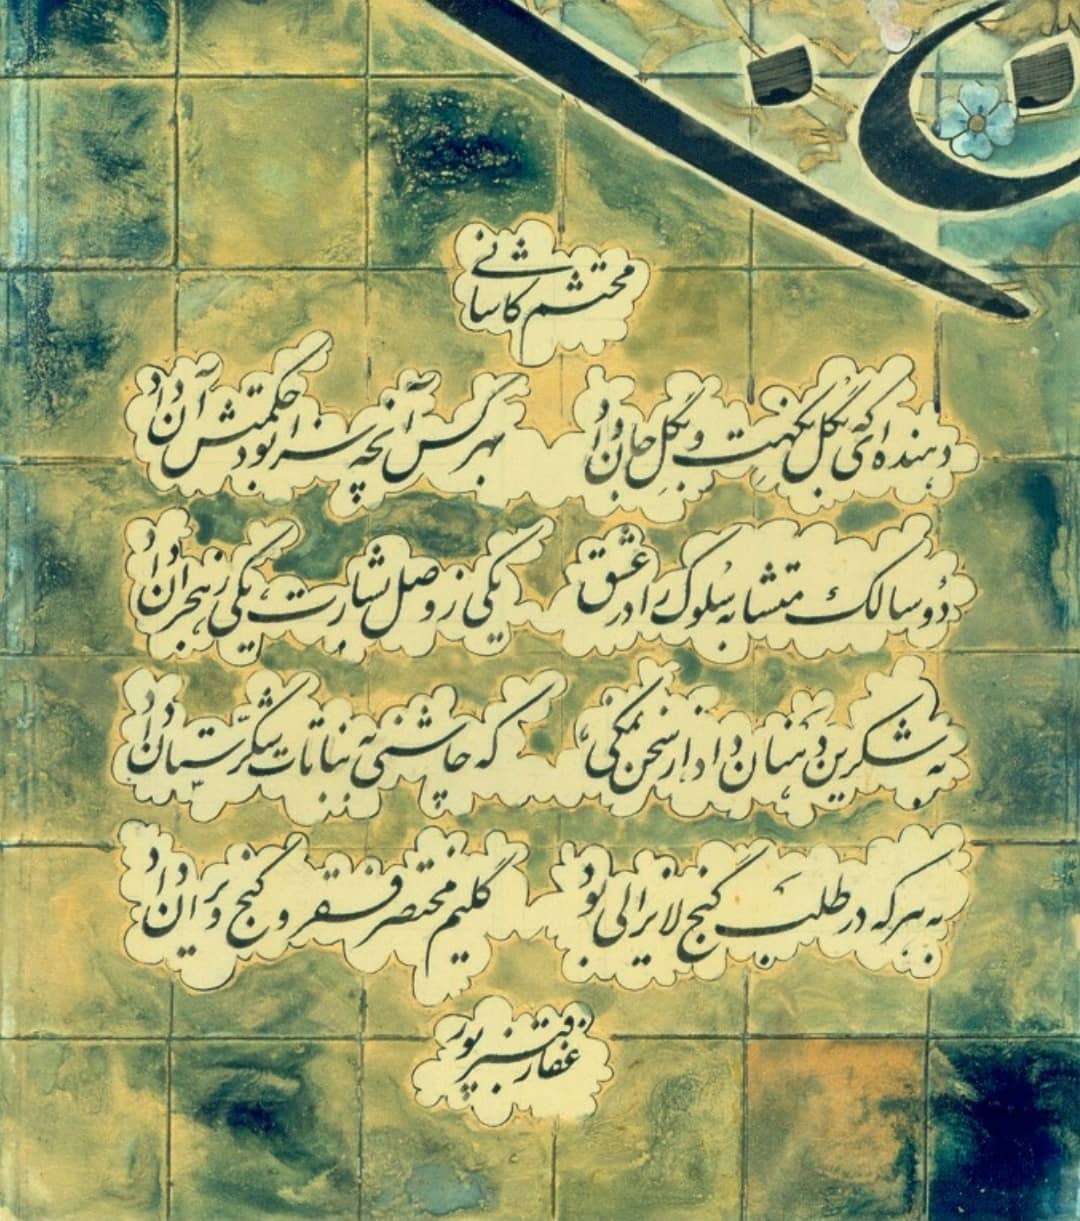 محتشم کاشانی
دهنده ای که بگل نکهت و بگل جان داد بهر کس آنچه سزا بود حکمتش آن داد
دو سالک متشابه سلوک را در عشق یکی ز وصل بشارت یکی ز هجران داد
به شکرین دهنان داد از سخن نمکی که چاشنی به نباتات شکّرستان داد
به هر که در طلب گنج لایزالی بود گلیم مختصر فقر و کنج ویران داد
غفار قنبرپور